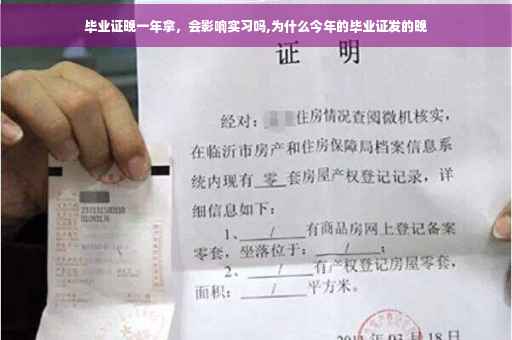 毕业证晚一年拿，会影响实习吗,为什么今年的毕业证发的晚
证 明
经对：住房情况查阅微机核实，
在临沂市房产和住房保障局档案信息系
统内现有 零 套房屋产权登记记录，详
细信息如下：
1、 / 有商品房网上登记备案
零套，坐落位于： / ；
2、 / 有产权登记房屋零套，
面积： / 平方米。
年 03 月 18 日